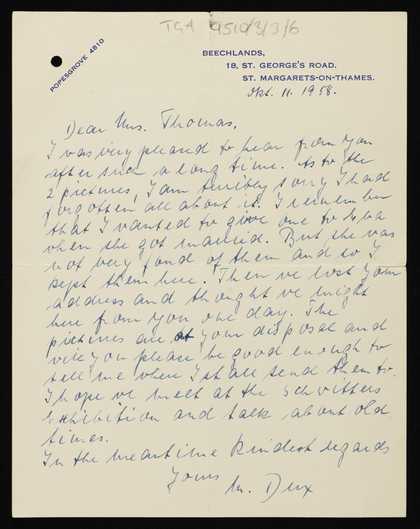 TGA 9510/3/3/6
POPESGROVE 4810
BEECHLANDS,
18, ST. GEORGE'S ROAD.
ST. MARGARETS-ON-THAMES.
Okt. 11. 1958.
Dear Mrs. Thomas,
I was very pleased to hear from you
after such a long time. As to the
2 pictures, I am terribly sorry I had
forgotten all about it. I remember
that I wanted to give one to Eva
when she got married. But she was
not very fond of them and so I
kept them here. Then we lost your
address and thought we might
hear from you one day. The
pictures are at your disposal and
will you please be good enough to
tell me when I shall send them to.
I hope we meet at the Schwitters
Exhibition and talk about old
times.
In the meantime kindest regards
Yours
M. Dux